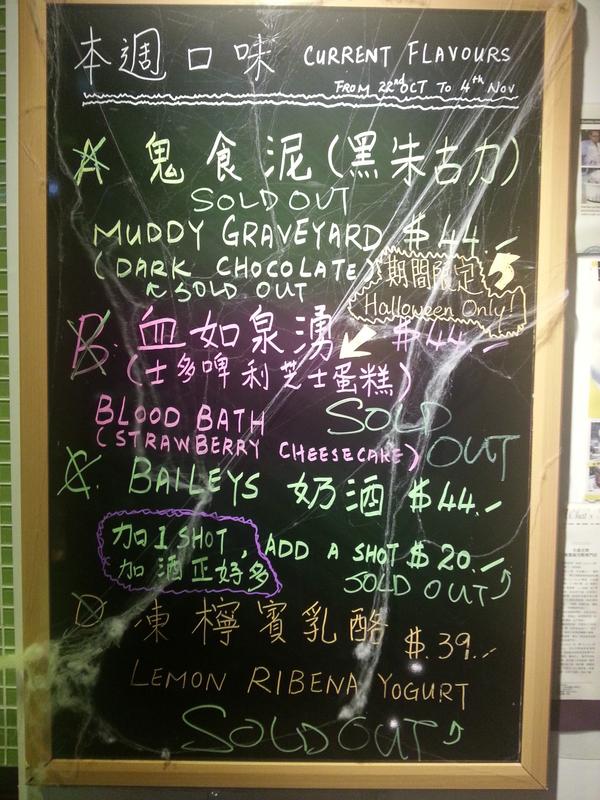 本週口味 CURRENT FLAVOURS
FROM 22nd OCT TO 4th NOV
A 鬼食泥(黑朱古力)
SOLD OUT
MUDDY GRAVEYARD $44.-
(DARK CHOCOLATE)
SOLD OUT
期間限定
Halloween Only!
B. 血如泉湧 $44.-
(士多啤利芝士蛋糕)
BLOOD BATH
(STRAWBERRY CHEESECAKE)
SOLD OUT
C. BAILEYS 奶酒 $44.-
加1 SHOT, ADD A SHOT $20.-
加酒正好多
SOLD OUT
D 凍檸賓乳酪 $.39.-
LEMON RIBENA YOGURT
SOLD OUT